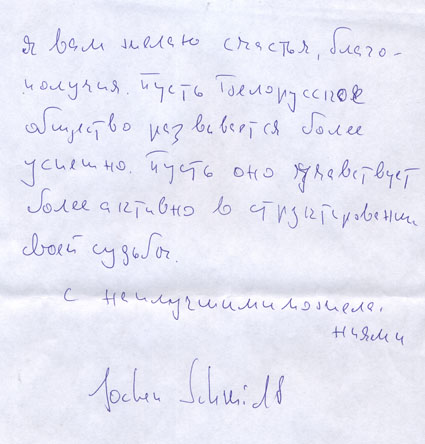 я вам желаю счастья, благо-
получия. Пусть Белорусское
общество развивается более
успешно. Пусть оно участвует
более активно в структировании
своей судьбы.
с наилучшими пожела.
ниями
Jochen Schmidt